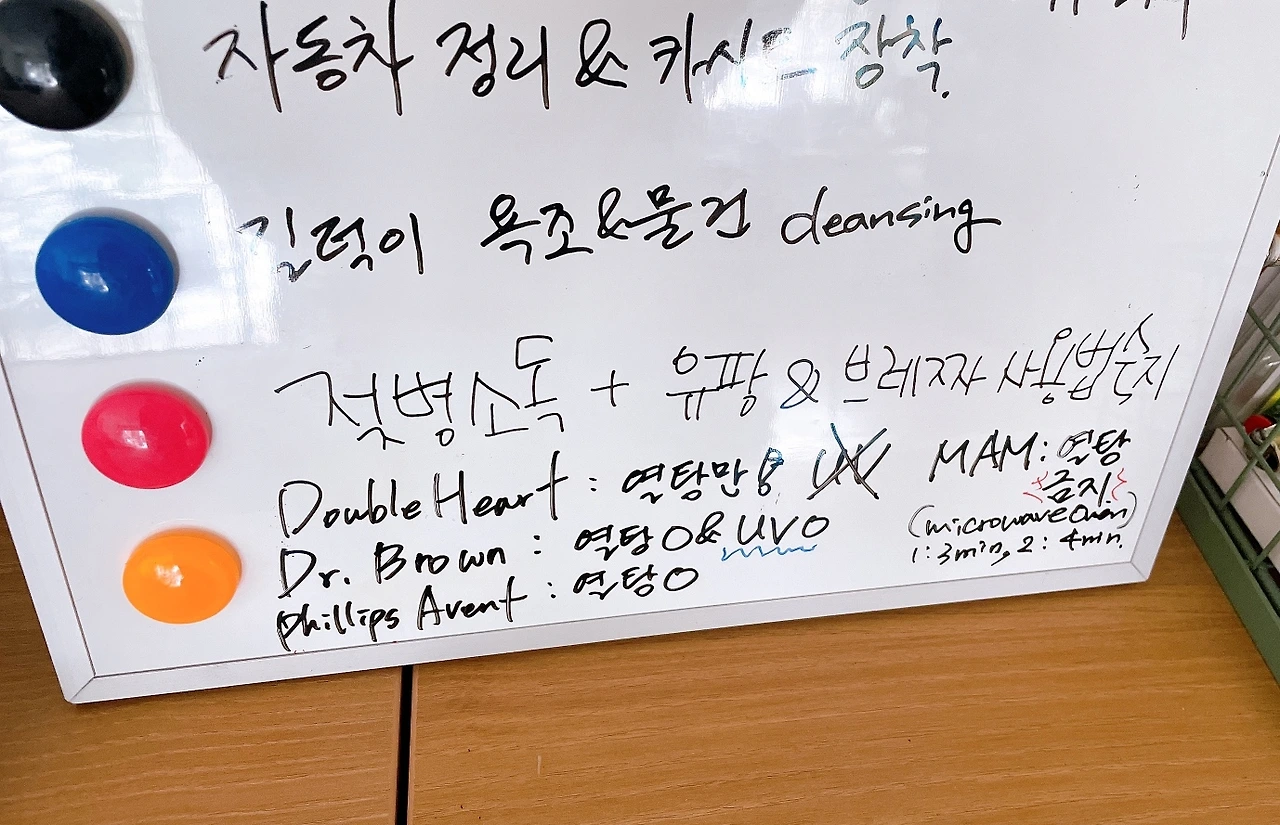 자동차 정리 & 카시트 장착.
길덕이 욕조&물건 cleansing
젖병소독 + 유팡 & 브레짜 사용법숙지
Double Heart : 열탕만 UV
Dr. Brown : 열탕O& UVO
Phillips Avent : 열탕O
MAM: 열탕
금지
(microwave Oven)
1:3min, 2: 4min.